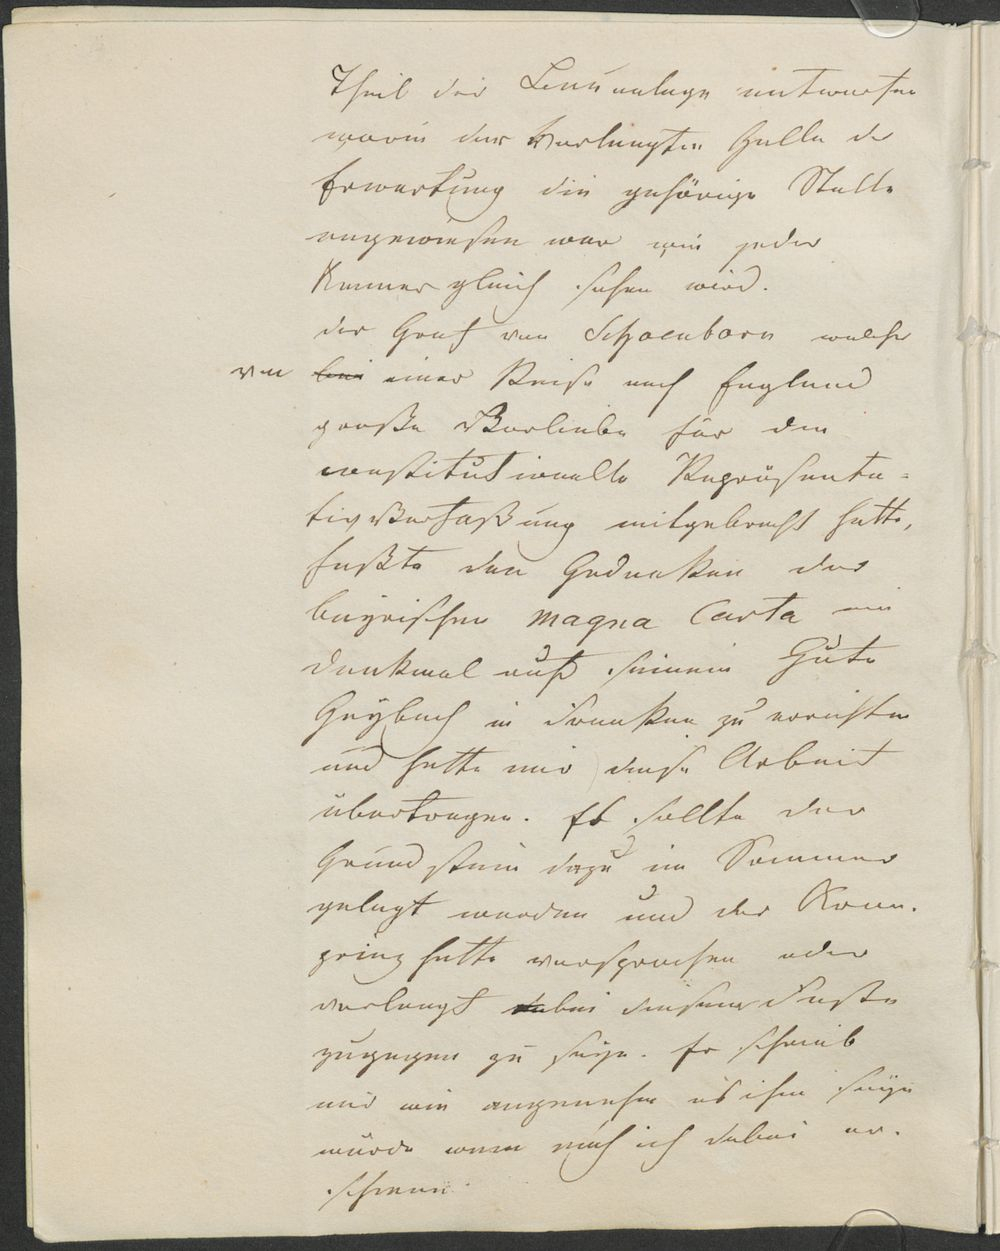 Theil der Bauanlage entworfen
worin der verlangten Halle der
Erwartung die gehörige Stelle
angewiesen war wie jeder
Kenner gleich sehen wird.
der Graf von Schoenborn welcher
von bei einer Reise nach England
große Vorliebe für die
constitutionelle Repräsenta=
tiv Verfaßung mitgebracht hatte,
faßte den Gedanken der
bayrischen magna Carta ein
Denkmal auf seinem Gute
Gaybach in Franken zu errichten
und hatte mir diese Arbeit
übertragen. Es sollte der
Grundstein dazu im Sommer
gelegt werden und der Kron-
prinz hatte versprochen oder
verlangt bei diesem Feste
zugegen zu seyn. Er schrieb
mir wie angenehm es ihm seyn
würde wenn auch ich dabei er-
schiene.